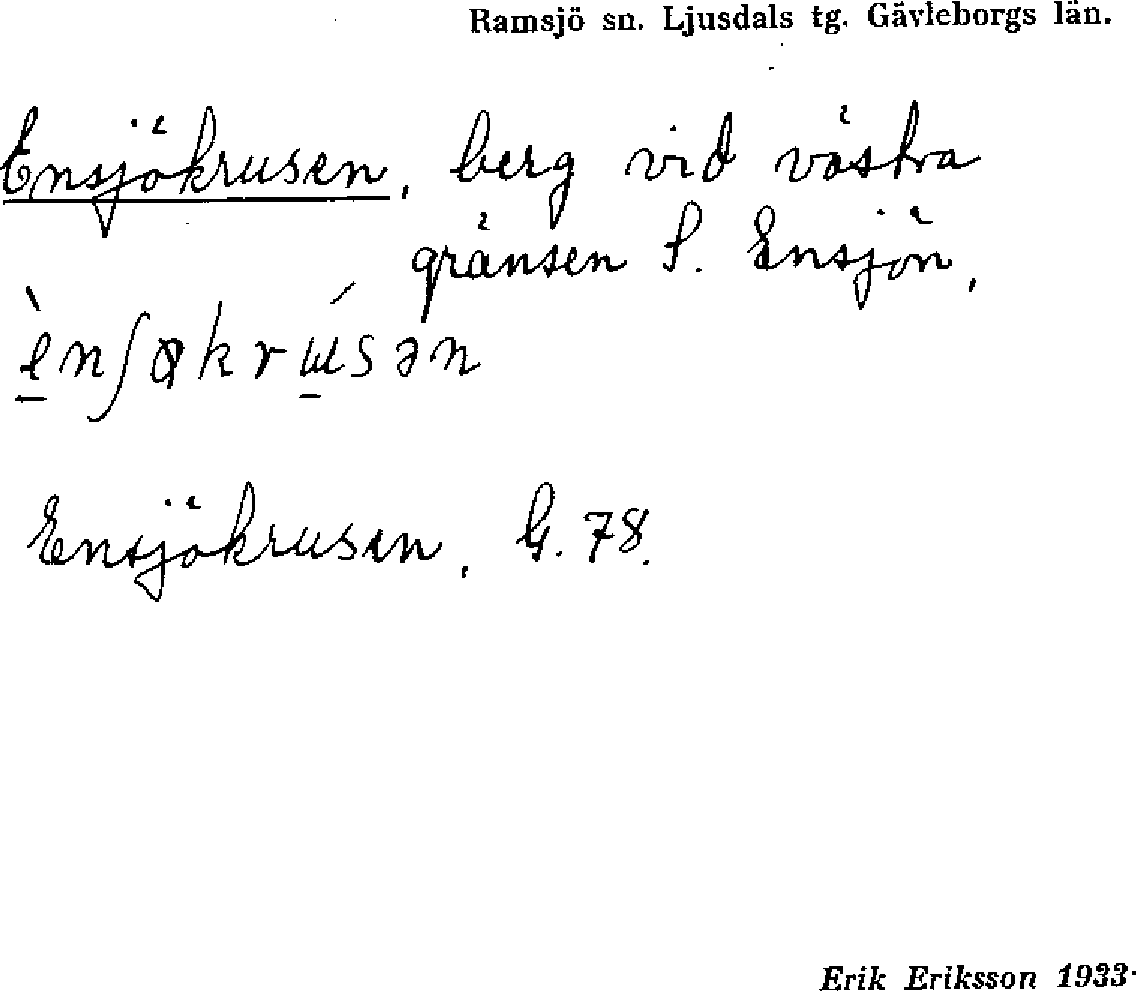 Ramsjö sn. Ljusdals tg. Gävleborgs län.
Ensjökrusen, berg vid västra
gränsen S. Ensjön,
Ensjökrusen, G. 78.
Erik Eriksson 1933.